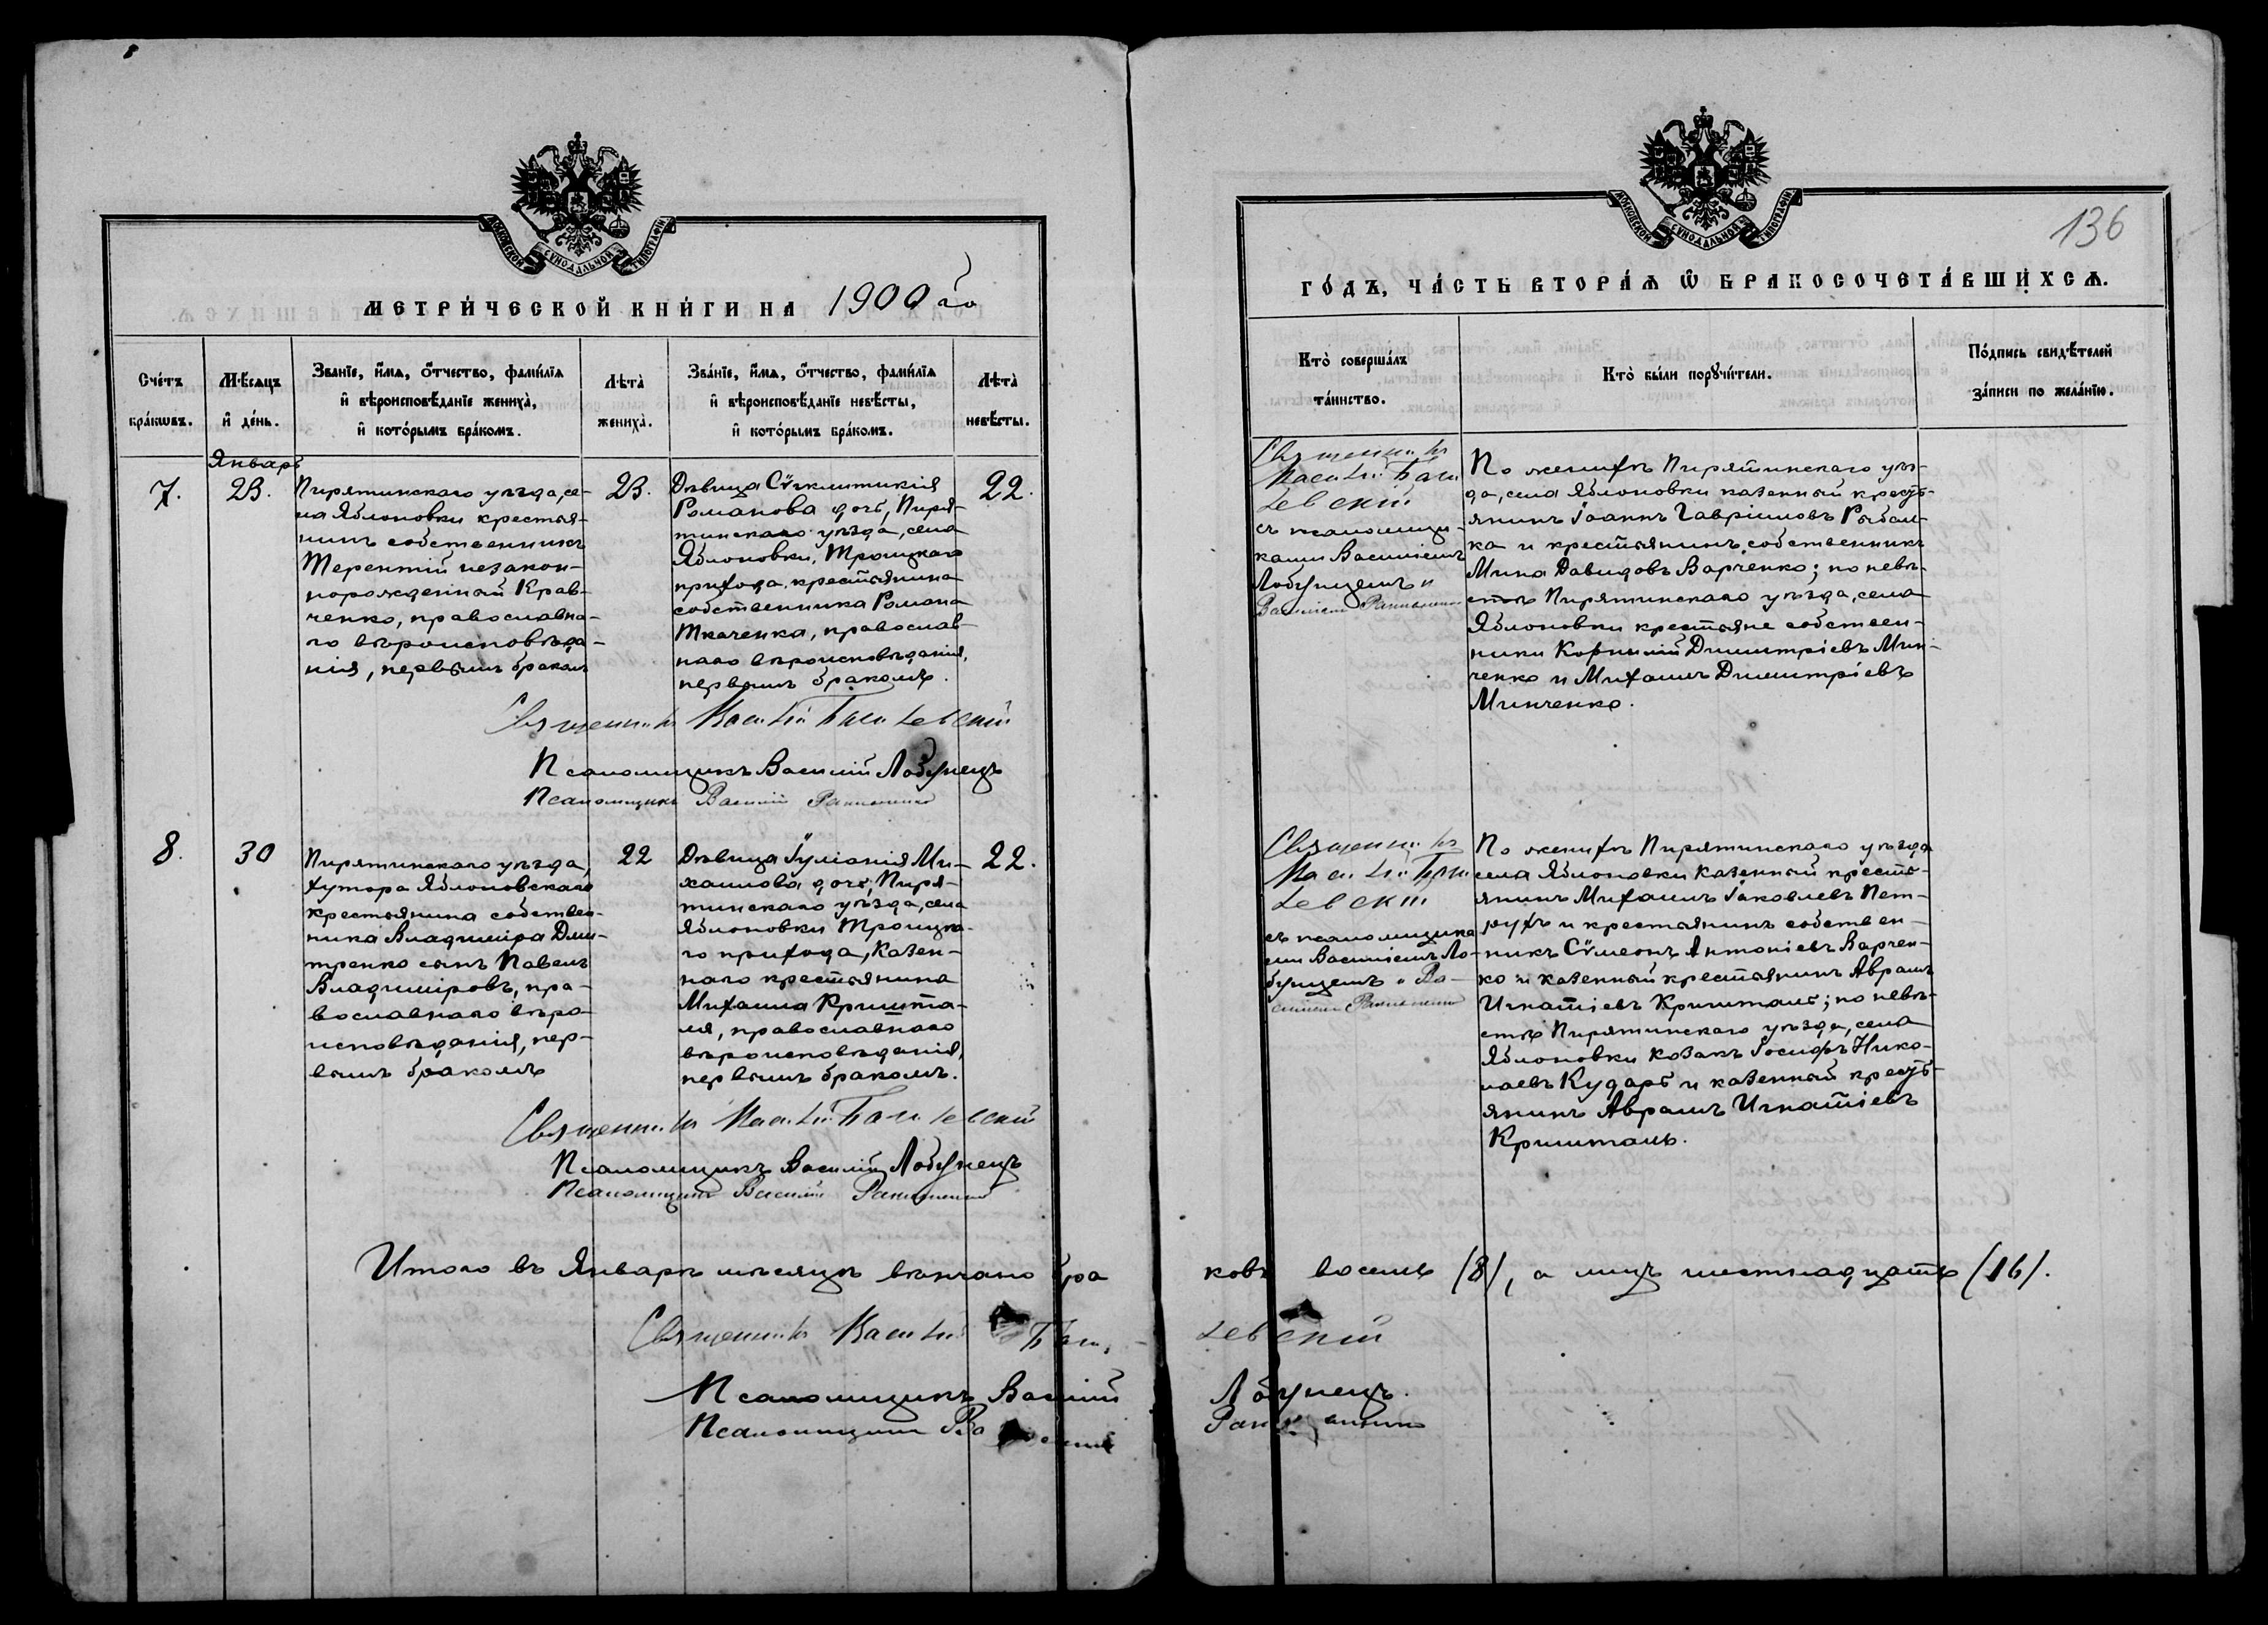 МОСКОВСКОЙ СѴНОДАЛЬНОЙ ТИПОГРАФІИ
МЕТРИ́ЧЕСКОЙ КНИ́ГИ НА 1900 го
Сче́тъ бра́кѡвъ.
Мѣ́сяцъ и҆ де́нь.
Зва́нїе, и҆́мѧ, ѻ҆́тчество, фами́лїѧ
и҆ вѣроисповѣ́данїе жениха̀,
и҆ кото́рымъ бра́комъ.
Лѣта̀ жениха̀.
Зва́нїе, и҆́мѧ, ѻ҆́тчество, фами́лїѧ
и҆ вѣроисповѣ́данїе невѣ́сты,
и҆ кото́рымъ бра́комъ.
Лѣта̀ невѣ́сты.
Январь
7.
23.
Пирятинскаго уѣзда, се-
ла Яблоновки крестья-
нинъ собственникъ
Терентій незакон-
норожденный Крав-
ченко, православна-
го вѣроисповѣда-
нія, первымъ бракомъ
23.
Дѣвица Сѵнклитикія
Романова дочь, Пиря-
тинскаго уѣзда, села
Яблоновки, Троицкаго
прихода, крестьянина
собственника Романа
Ткаченка, православ-
наго вѣроисповѣданія,
первымъ бракомъ.
22.
Священникъ Василій
Псаломщикъ Василій Лобунецъ
Псаломщикъ Василій
8.
30
Пирятинскаго уѣзда,
хутора Яблоновскаго
крестьянина собствен-
ника Владиміра Дми-
тренко сынъ Павелъ
Владиміровъ, пра-
вославнаго вѣро-
исповѣданія, пер-
вымъ бракомъ
22
Дѣвица Іуліанія Ми-
хаилова дочь, Пиря-
тинскаго уѣзда, села
Яблоновки Троицка-
го прихода, казен-
наго крестьянина
Михаила Кришта-
ля, православнаго
вѣроисповѣданія,
первымъ бракомъ.
22.
Священникъ Василій
Псаломщикъ Василій Лобунецъ
Псаломщикъ Василій
Итого въ Январѣ мѣсяцѣ вѣнчано бра
Священникъ Василій
Псаломщикъ Василій
Псаломщикъ
МОСКОВСКОЙ СѴНОДАЛЬНОЙ ТИПОГРАФІИ
136
ГО́ДЪ, ЧА́СТЬ ВТОРА́Ѧ Ѽ БРАКОСОЧЕТА́ВШИХСѦ.
Кто̀ соверша́лъ
та́инство.
Кто̀ бы́ли порꙋчи́тели.
По́дпись свидѣ́телей
за́писи по жела́нїю.
Священникъ
Василій
съ псаломщи-
ками Василіемъ
Лобунцемъ и
Василіемъ
По женихѣ Пирятинскаго уѣз-
да, села Яблоновки казенный кресть-
янинъ Іоаннъ Гавріиловъ Рыбал-
ка и крестьянинъ собственникъ
Мина Давидовъ Варченко; по невѣ-
стѣ Пирятинскаго уѣзда, села
Яблоновки крестьяне собствен-
ники Корнилій Димитріевъ Мин-
ченко и Михаилъ Димитріевъ
Минченко.
Священникъ
Василій
съ псаломщика
ми Василіемъ Ло-
бунцемъ и Ва-
силіемъ
По женихѣ Пирятинскаго уѣзда
села Яблоновки казенный кресть-
янинъ Михаилъ Іаковлевъ Пет-
рухъ и крестьянинъ собствен-
никъ Сѵмеонъ Антоніевъ Варчен-
ко и казенный крестьянинъ Аврамъ
Игнатіевъ Кришталь; по невѣ-
стѣ Пирятинскаго уѣзда, села
Яблоновки козакъ Іосифъ Нико-
лаевъ Кударь и казенный кресть-
янинъ Аврамъ Игнатіевъ
Кришталь.
ковъ восемь (8), а лицъ шестнадцать (16).
Лобунецъ.